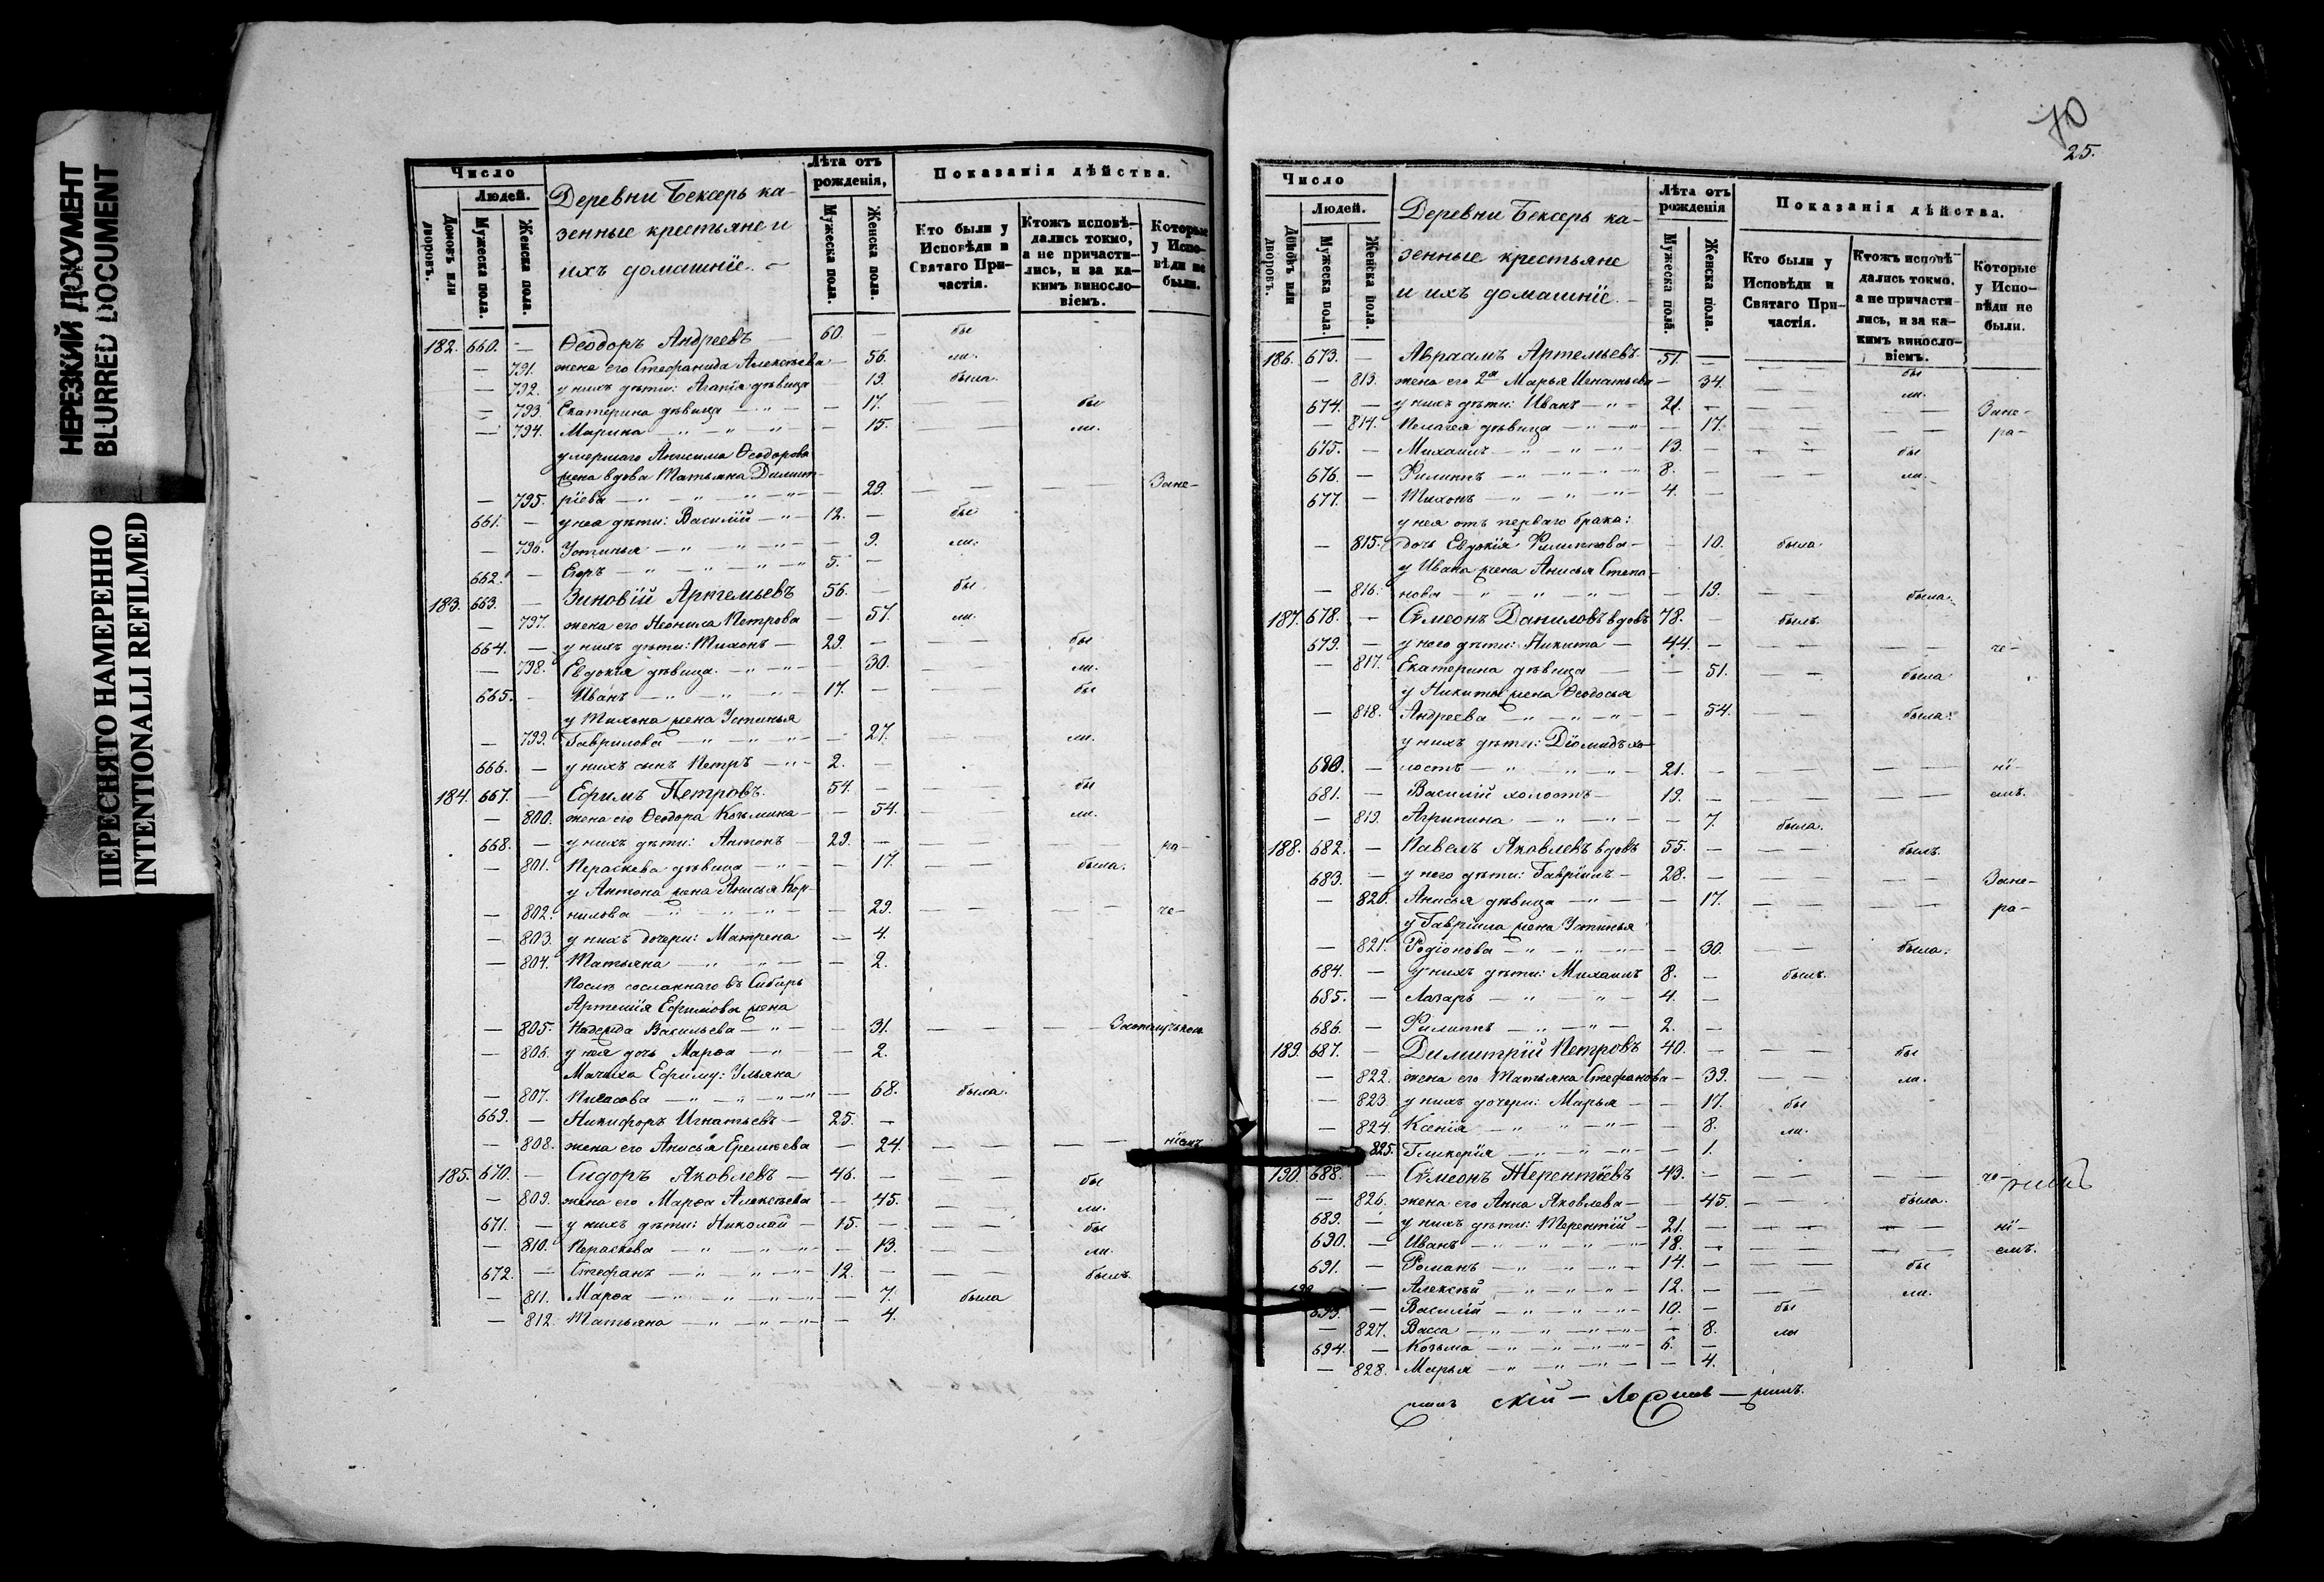 НЕРЕЗКИЙ ДОКУМЕНТ
BLURRED DOCUMENT
ПЕРЕСНЯТО НАМЕРЕННО
INTENTIONALLI REFILMED
Число
Людей.
Домовъ или дворовъ.
Мужеска пола.
Женска пола.
Деревни Бексерь ка-
зенные крестьяне и
ихъ домашніе.
Лѣта отъ рожденія,
Мужеска пола.
Женска пола.
Показанія дѣйства.
Кто были у Исповѣди и Святаго Причастія.
Ктожъ исповѣдались токмо, а не причастились, и за какимъ винословіемъ.
Которые у Исповѣди не были.
182. 660. — Ѳеодоръ Андреевъ 60. — бы
— 791. жена его Стефанида Алексѣева — 56. ли.
— 792. у нихъ дѣти: Агапія дѣвица — 19. была.
— 793. Екатерина дѣвица — „ — — 17. — — бы
— 794. Марина — „ — „ — „ — 15. — — ли.
умершаго Анисима Ѳеодорова
жена вдова Татьяна Димит-
— 795. ріева — „ — „ — „ — „ — 29. — — — Зане-
661. — у нея дѣти: Василій — „ — 12. — бы
— 796. Устинья — „ — „ — „ — — 9. ли.
662. — Егоръ — „ — „ — „ — „ 5. —
183. 663. — Зиновій Артемьевъ 56. — бы
— 797. жена его Неонила Петрова — 57. ли.
664. — у нихъ дѣти: Тихонъ — 29. — — — бы
— 798. Евдокія дѣвица — „ — „ — — 30. — — ли.
665. — Иванъ — „ — „ — „ — 17. — — — бы
у Тихона жена Устинья
— 799. Гаврилова — „ — „ — „ — — 27. — — ли.
666. — у нихъ сынъ Петръ — „ — 2. —
184. 667. — Ефимъ Петровъ. 54. — — — бы
— 800. жена его Ѳеодора Козьмина — — 54. — ли.
668. — у нихъ дѣти: Антонъ — 29. — — — ра-
— 801. Параскева дѣвица — „ — — 17. — — была.
у Антона жена Анисья Кор-
— 802. нилова — „ — „ — „ — — 29. — — — — че-
— 803. у нихъ дочери: Матрена — 4.
— 804. Татьяна — „ — „ — — 2.
Послѣ сосланнаго въ Сибирь
Артемія Ефимова жена
— 805. Надежда Васильева — „ — — 31. — —
— 806. у нея дочь Марѳа — „ — — 2.
Мачиха Ефиму: Ульяна
— 807. — „ — „ — „ — „ — 68. была.
669. — Никифоръ Игнатьевъ — 25. —
— 808. жена его Анисья Еремѣева — 24. — — — — ніемъ
185. 670. — Сидоръ Яковлевъ — 46. — — — бы
— 809. жена его Марѳа Алексѣева — 45. — — ли.
671. — у нихъ дѣти: Николай — 15. — — — бы
— 810. Параскева — „ — „ — „ — — 13. — — ли.
672. — Стефанъ — „ — „ — „ — 12. — — — былъ.
— 811. Марѳа — „ — „ — „ — — 7. была
— 812. Татьяна — „ — „ — „ — — 4.
70
25.
Число
Людей.
Домовъ или дворовъ.
Мужеска пола.
Женска пола.
Деревни Бексерь ка-
зенные крестьяне
и ихъ домашніе.
Лѣта отъ рожденія
Мужеска пола.
Женска пола.
Показанія дѣйства.
Кто были у Исповѣди и Святаго Причастія.
Ктожъ исповѣдались токмо, а не причастились, и за какимъ винословіемъ.
Которые у Исповѣди не были.
186. 673. — Авраамъ Артемьевъ 51. — — — бы
— 813. жена его 2я Марья Игнатьева — 34. — — ли.
674. — у нихъ дѣти: Иванъ — „ — 21. — — — — — Зане-
— 814. Пелагея дѣвица — „ — „ — 17. — — — — ра-
675. — Михаилъ — „ — „ — „ — 13. — — — бы
676. — Филиппъ — „ — „ — „ — „ 8. — — — ли.
677. — Тихонъ — „ — „ — „ — 4. —
у нея отъ перваго брака:
— 815. дочь Евдокія Филиппова — — 10. была.
у Ивана жена Анисья Степа-
— 816. нова — „ — „ — „ — — 19. — была.
187. 678. — Сѵмеонъ Даниловъ вдовъ 78. — былъ.
679. — у него дѣти: Никита — 44. — — — — — че-
— 817. Екатерина дѣвица — — 51. — — была
у Никиты жена Ѳеодосья
— 818. Андреева — „ — „ — „ — — 54. — — была.
у нихъ дѣти: Діомидъ хо-
680. — лостъ — „ — „ — „ — 21. — — — — — ні-
681. — Василій холостъ — 19. — — — — — емъ.
— 819. Агрипина — „ — „ — — 7. была.
188. 682. — Павелъ Яковлевъ вдовъ 55. — — — былъ.
683. — у него дѣти: Гавріилъ — 28. — — — — — Зане-
— 820. Анисья дѣвица — „ — — 17. — — — — ра-
у Гавріила жена Устинья
— 821. Родіонова — „ — „ — „ — — 30. — — была.
684. — у нихъ дѣти: Михаилъ 8. — былъ.
685. — Лазарь — „ — „ — 4. —
686. — Филиппъ — „ — „ — 2. —
189. 687. — Димитрій Петровъ 40. — — — бы
— 822. жена его Татьяна Стефанова — 39. — — ли.
— 823. у нихъ дочери: Марья — — 17. бы
— 824. Ксенія — „ — „ — „ — — 8. ли.
825. Гликерія — „ — „ — „ — — 1.
190. 688. — Сѵмеонъ Терентьевъ 43. — — — —
— 826. жена его Анна Яковлева — — 45. — — была.
689. — у нихъ дѣти: Терентій — 21. — — — — — ні-
690. — Иванъ — „ — „ — „ — „ 18. — — — — — емъ.
691. — Романъ — „ — „ — „ — 14. — — — бы
— Алексѣй — „ — „ — „ — 12. — — — ли.
693. — Василій — „ — „ — „ — 10. — бы
— 827. Васса — „ — „ — „ — „ — 8. ла
694. — Козьма — „ — „ — „ — „ 6. —
— 828. Марья — „ — „ — „ — „ — 4.
скій —